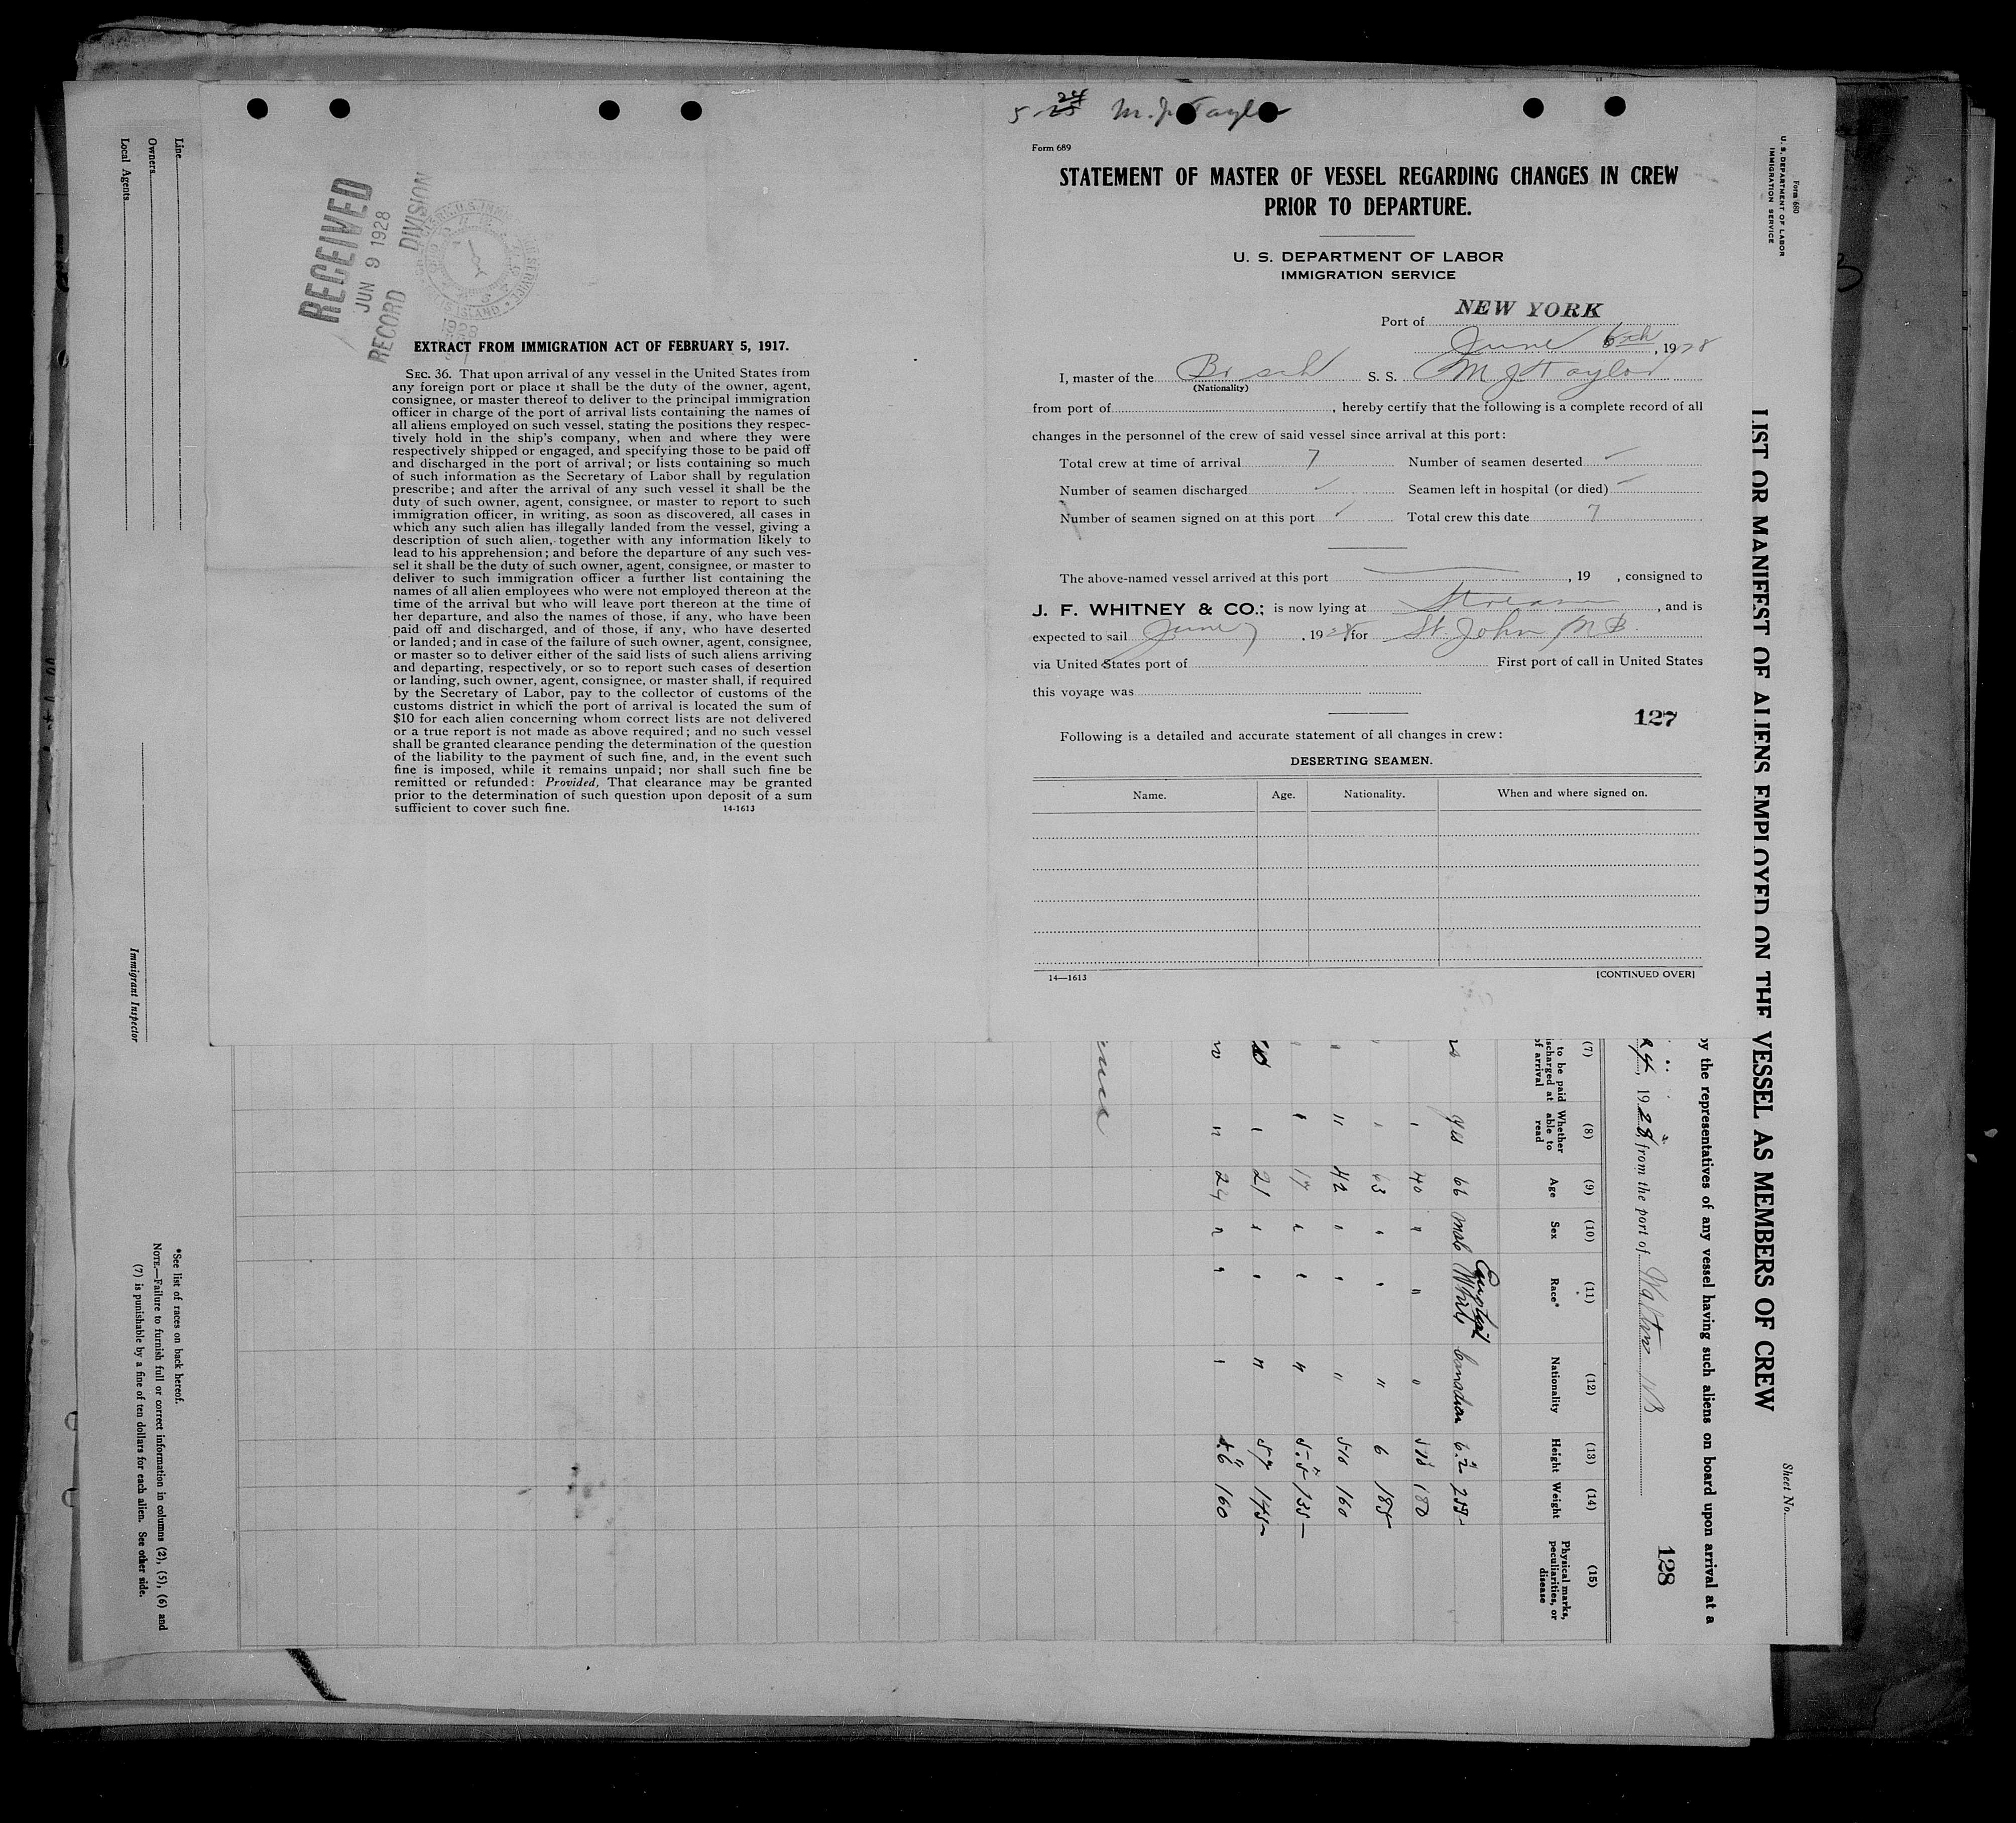 5-24 M. J. Taylor
Form 689
STATEMENT OF MASTER OF VESSEL REGARDING CHANGES IN CREW
PRIOR TO DEPARTURE.
U. S. DEPARTMENT OF LABOR
IMMIGRATION SERVICE
Port of NEW YORK
June 6th, 1928
I, master of the Br sch S. S. M J Taylor
(Nationality)
from port of , hereby certify that the following is a complete record of all
changes in the personnel of the crew of said vessel since arrival at this port:
Total crew at time of arrival 7 Number of seamen deserted
Number of seamen discharged Seamen left in hospital (or died)
Number of seamen signed on at this port Total crew this date 7
The above-named vessel arrived at this port , 19 , consigned to
J. F. WHITNEY & CO.; is now lying at Stream , and is
expected to sail June 7, 1928 for St. John N B.
via United States port of First port of call in United States
this voyage was
127
Following is a detailed and accurate statement of all changes in crew:
DESERTING SEAMEN.
Name. Age. Nationality. When and where signed on.
14—1613 [CONTINUED OVER]
RECEIVED
JUN 9 1928
RECORD DIVISION
1928
EXTRACT FROM IMMIGRATION ACT OF FEBRUARY 5, 1917.
SEC. 36. That upon arrival of any vessel in the United States from
any foreign port or place it shall be the duty of the owner, agent,
consignee, or master thereof to deliver to the principal immigration
officer in charge of the port of arrival lists containing the names of
all aliens employed on such vessel, stating the positions they respec-
tively hold in the ship's company, when and where they were
respectively shipped or engaged, and specifying those to be paid off
and discharged in the port of arrival; or lists containing so much
of such information as the Secretary of Labor shall by regulation
prescribe; and after the arrival of any such vessel it shall be the
duty of such owner, agent, consignee, or master to report to such
immigration officer, in writing, as soon as discovered, all cases in
which any such alien has illegally landed from the vessel, giving a
description of such alien, together with any information likely to
lead to his apprehension; and before the departure of any such ves-
sel it shall be the duty of such owner, agent, consignee, or master to
deliver to such immigration officer a further list containing the
names of all alien employees who were not employed thereon at the
time of the arrival but who will leave port thereon at the time of
her departure, and also the names of those, if any, who have been
paid off and discharged, and of those, if any, who have deserted
or landed; and in case of the failure of such owner, agent, consignee,
or master so to deliver either of the said lists of such aliens arriving
and departing, respectively, or so to report such cases of desertion
or landing, such owner, agent, consignee, or master shall, if required
by the Secretary of Labor, pay to the collector of customs of the
customs district in which the port of arrival is located the sum of
$10 for each alien concerning whom correct lists are not delivered
or a true report is not made as above required; and no such vessel
shall be granted clearance pending the determination of the question
of the liability to the payment of such fine, and, in the event such
fine is imposed, while it remains unpaid; nor shall such fine be
remitted or refunded: Provided, That clearance may be granted
prior to the determination of such question upon deposit of a sum
sufficient to cover such fine. 14-1613
Form 680
U. S. DEPARTMENT OF LABOR
IMMIGRATION SERVICE
Sheet No.
LIST OR MANIFEST OF ALIENS EMPLOYED ON THE VESSEL AS MEMBERS OF CREW
by the representatives of any vessel having such aliens on board upon arrival at a
24, 1928, from the port of Walton 128
(7) (8) (9) (10) (11) (12) (13) (14) (15)
to be paid
discharged at
of arrival
Whether
able to
read
Age
Sex
Race*
Nationality
Height
Weight
Physical marks,
peculiarities, or
disease
English
yes 66 male White Canadian 6.2
" 40 " " " 180
" " " " 6 185
" 42 " " " 510 160
" 17 " " " 5.5 135
" 21 " " " 57 145
" 24 " " " 5.6 160
Line
Owners
Local Agents
Immigrant Inspector
*See list of races on back hereof.
NOTE.—Failure to furnish full or correct information in columns (2), (5), (6) and
(7) is punishable by a fine of ten dollars for each alien. See other side.